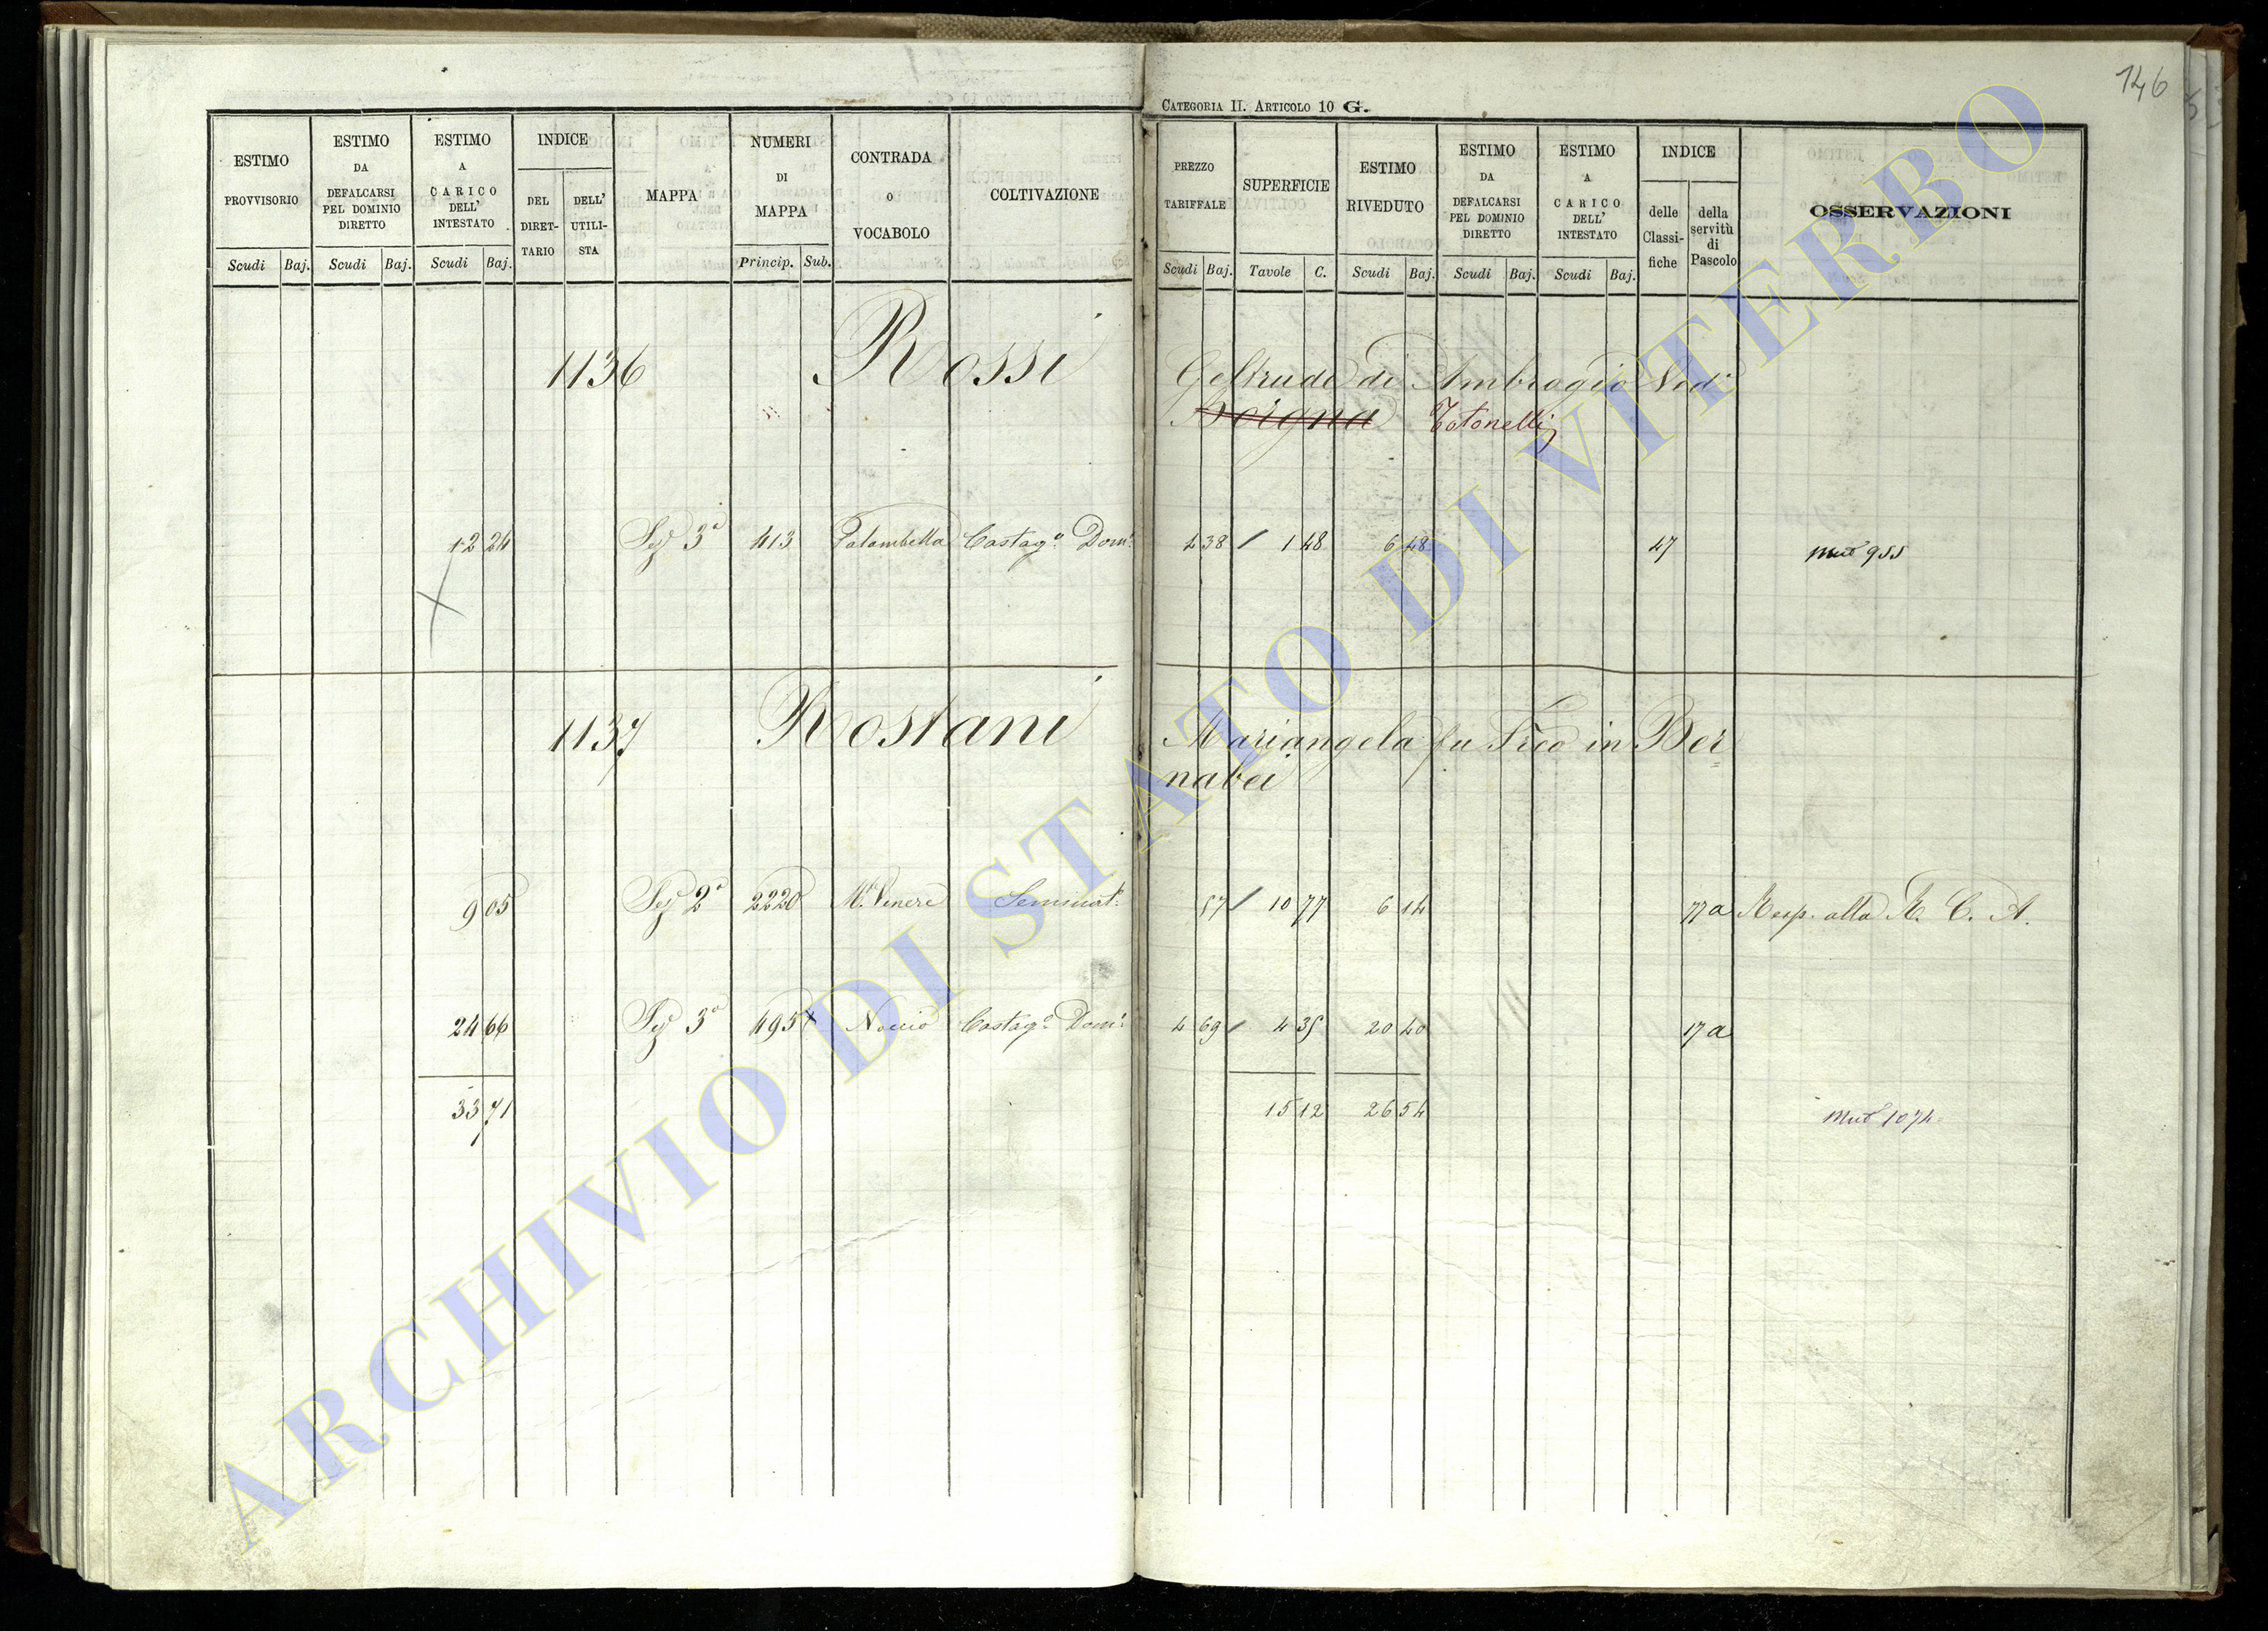 146
CATEGORIA II. ARTICOLO 10 G.
ESTIMO PROVVISORIO
ESTIMO DA DEFALCARSI PEL DOMINIO DIRETTO
ESTIMO A CARICO DELL' INTESTATO
INDICE
DEL DIRET-TARIO
DELL' UTILI-STA
MAPPA
NUMERI DI MAPPA
CONTRADA O VOCABOLO
COLTIVAZIONE
PREZZO TARIFFALE
SUPERFICIE
ESTIMO RIVEDUTO
ESTIMO DA DEFALCARSI PEL DOMINIO DIRETTO
ESTIMO A CARICO DELL' INTESTATO
INDICE
delle Classi-fiche
della servitù di Pascolo
OSSERVAZIONI
Scudi Baj. Scudi Baj. Scudi Baj. Princip. Sub. Scudi Baj. Tavole C. Scudi Baj. Scudi Baj. Scudi Baj.
1136 Rossi Geltrude di Ambrogio Ved.
Totonelli
12 24 Sez 3ª 413 Palambella Castag.o Dom. 4 38 / 1 48 6 48 47 Mut 955
1137 Rostani Mariangela fu Fřco in Ber
nabei
9 05 Sez 2ª 2220 M. Venere Seminat. 57 / 10 77 6 14 77 a Resp. alla R. C. A.
24 66 Sez 3ª 495 Noccio Castag.o Dom. 4 69 / 4 35 20 40 17 a
33 71 15 12 26 54 Mut 1074
ARCHIVIO DI STATO DI VITERBO